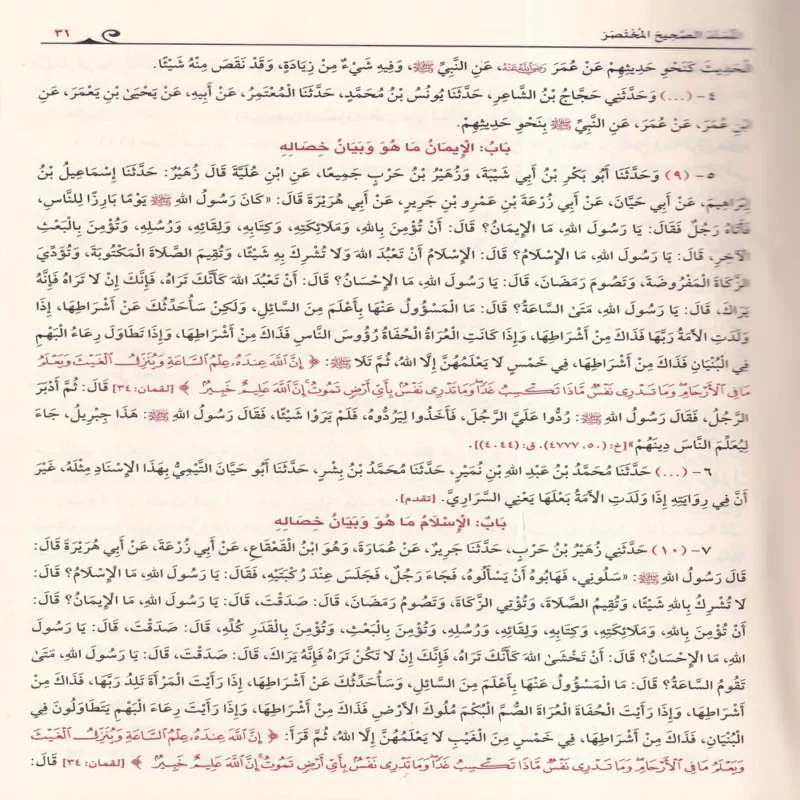 المسند الصحيح المختصر ٣١
الحَدِيثَ كَنَحْوِ حَدِيثِهِمْ عَنْ عُمَرَ رَضِيَ اللهُ عَنْهُ، عَنِ النَّبِيِّ ﷺ، وَفِيهِ شَيْءٌ مِنْ زِيَادَةٍ، وَقَدْ نَقَصَ مِنْهُ شَيْئًا.
٤- (...) وَحَدَّثَنِي حَجَّاجُ بْنُ الشَّاعِرِ، حَدَّثَنَا يُونُسُ بْنُ مُحَمَّدٍ، حَدَّثَنَا الْمُعْتَمِرُ، عَنْ أَبِيهِ، عَنْ يَحْيَىٰ بْنِ يَعْمَرَ، عَنِ
ابْنِ عُمَرَ، عَنْ عُمَرَ، عَنِ النَّبِيِّ ﷺ بِنَحْوِ حَدِيثِهِمْ.
بَابُ: الْإِيمَانُ مَا هُوَ وَبَيَانُ خِصَالِهِ
٥- (٩) وَحَدَّثَنَا أَبُو بَكْرِ بْنُ أَبِي شَيْبَةَ، وَزُهَيْرُ بْنُ حَرْبٍ جَمِيعًا، عَنِ ابْنِ عُلَيَّةَ قَالَ زُهَيْرٌ: حَدَّثَنَا إِسْمَاعِيلُ بْنُ
إِبْرَاهِيمَ، عَنْ أَبِي حَيَّانَ، عَنْ أَبِي زُرْعَةَ بْنِ عَمْرِو بْنِ جَرِيرٍ، عَنْ أَبِي هُرَيْرَةَ قَالَ: «كَانَ رَسُولُ اللهِ ﷺ يَوْمًا بَارِزًا لِلنَّاسِ،
فَأَتَاهُ رَجُلٌ فَقَالَ: يَا رَسُولَ اللهِ، مَا الْإِيمَانُ؟ قَالَ: أَنْ تُؤْمِنَ بِاللهِ، وَمَلَائِكَتِهِ، وَكِتَابِهِ، وَلِقَائِهِ، وَرُسُلِهِ، وَتُؤْمِنَ بِالْبَعْثِ
الْآخِرِ، قَالَ: يَا رَسُولَ اللهِ، مَا الْإِسْلَامُ؟ قَالَ: الْإِسْلَامُ أَنْ تَعْبُدَ اللهَ وَلَا تُشْرِكَ بِهِ شَيْئًا، وَتُقِيمَ الصَّلَاةَ الْمَكْتُوبَةَ، وَتُؤَدِّيَ
الزَّكَاةَ الْمَفْرُوضَةَ، وَتَصُومَ رَمَضَانَ، قَالَ: يَا رَسُولَ اللهِ، مَا الْإِحْسَانُ؟ قَالَ: أَنْ تَعْبُدَ اللهَ كَأَنَّكَ تَرَاهُ، فَإِنَّكَ إِنْ لَا تَرَاهُ فَإِنَّهُ
يَرَاكَ، قَالَ: يَا رَسُولَ اللهِ، مَتَىٰ السَّاعَةُ؟ قَالَ: مَا الْمَسْؤُولُ عَنْهَا بِأَعْلَمَ مِنَ السَّائِلِ، وَلَكِنْ سَأُحَدِّثُكَ عَنْ أَشْرَاطِهَا، إِذَا
وَلَدَتِ الْأَمَةُ رَبَّهَا فَذَاكَ مِنْ أَشْرَاطِهَا، وَإِذَا كَانَتِ الْعُرَاةُ الْحُفَاةُ رُؤُوسَ النَّاسِ فَذَاكَ مِنْ أَشْرَاطِهَا، وَإِذَا تَطَاوَلَ رِعَاءُ الْبَهْمِ
فِي الْبُنْيَانِ فَذَاكَ مِنْ أَشْرَاطِهَا، فِي خَمْسٍ لَا يَعْلَمُهُنَّ إِلَّا اللهُ، ثُمَّ تَلَا ﷺ: ﴿ إِنَّ اللَّهَ عِندَهُ عِلْمُ السَّاعَةِ وَيُنَزِّلُ الْغَيْثَ وَيَعْلَمُ
مَا فِي الْأَرْحَامِ وَمَا تَدْرِي نَفْسٌ مَّاذَا تَكْسِبُ غَدًا وَمَا تَدْرِي نَفْسٌ بِأَيِّ أَرْضٍ تَمُوتُ إِنَّ اللَّهَ عَلِيمٌ خَبِيرٌ ﴾ [لقمان: ٣٤] قَالَ: ثُمَّ أَدْبَرَ
الرَّجُلُ، فَقَالَ رَسُولُ اللهِ ﷺ: رُدُّوا عَلَيَّ الرَّجُلَ، فَأَخَذُوا لِيَرُدُّوهُ، فَلَمْ يَرَوْا شَيْئًا، فَقَالَ رَسُولُ اللهِ ﷺ: هَذَا جِبْرِيلُ، جَاءَ
لِيُعَلِّمَ النَّاسَ دِينَهُمْ»[خ: (٥٠، ٤٧٧٧). ق: (٤٠٤٤)].
٦- (...) حَدَّثَنَا مُحَمَّدُ بْنُ عَبْدِ اللهِ بْنِ نُمَيْرٍ، حَدَّثَنَا مُحَمَّدُ بْنُ بِشْرٍ، حَدَّثَنَا أَبُو حَيَّانَ التَّيْمِيُّ بِهَذَا الْإِسْنَادِ مِثْلَهُ، غَيْرَ
أَنَّ فِي رِوَايَتِهِ إِذَا وَلَدَتِ الْأَمَةُ بَعْلَهَا يَعْنِي السَّرَارِيَّ. [تقدم].
بَابُ: الْإِسْلَامُ مَا هُوَ وَبَيَانُ خِصَالِهِ
٧- (١٠) حَدَّثَنِي زُهَيْرُ بْنُ حَرْبٍ، حَدَّثَنَا جَرِيرٌ، عَنْ عُمَارَةَ، وَهُوَ ابْنُ الْقَعْقَاعِ، عَنْ أَبِي زُرْعَةَ، عَنْ أَبِي هُرَيْرَةَ قَالَ:
قَالَ رَسُولُ اللهِ ﷺ: «سَلُونِي، فَهَابُوهُ أَنْ يَسْأَلُوهُ، فَجَاءَ رَجُلٌ، فَجَلَسَ عِنْدَ رُكْبَتَيْهِ، فَقَالَ: يَا رَسُولَ اللهِ، مَا الْإِسْلَامُ؟ قَالَ:
لَا تُشْرِكُ بِاللهِ شَيْئًا، وَتُقِيمُ الصَّلَاةَ، وَتُؤْتِي الزَّكَاةَ، وَتَصُومُ رَمَضَانَ، قَالَ: صَدَقْتَ، قَالَ: يَا رَسُولَ اللهِ، مَا الْإِيمَانُ؟ قَالَ:
أَنْ تُؤْمِنَ بِاللهِ، وَمَلَائِكَتِهِ، وَكِتَابِهِ، وَلِقَائِهِ، وَرُسُلِهِ، وَتُؤْمِنَ بِالْبَعْثِ، وَتُؤْمِنَ بِالْقَدَرِ كُلِّهِ، قَالَ: صَدَقْتَ، قَالَ: يَا رَسُولَ
اللهِ، مَا الْإِحْسَانُ؟ قَالَ: أَنْ تَخْشَىٰ اللهَ كَأَنَّكَ تَرَاهُ، فَإِنَّكَ إِنْ لَا تَكُنْ تَرَاهُ فَإِنَّهُ يَرَاكَ، قَالَ: صَدَقْتَ، قَالَ: يَا رَسُولَ اللهِ، مَتَىٰ
تَقُومُ السَّاعَةُ؟ قَالَ: مَا الْمَسْؤُولُ عَنْهَا بِأَعْلَمَ مِنَ السَّائِلِ، وَسَأُحَدِّثُكَ عَنْ أَشْرَاطِهَا، إِذَا رَأَيْتَ الْمَرْأَةَ تَلِدُ رَبَّهَا، فَذَاكَ مِنْ
أَشْرَاطِهَا، وَإِذَا رَأَيْتَ الْحُفَاةَ الْعُرَاةَ الصُّمَّ الْبُكْمَ مُلُوكَ الْأَرْضِ فَذَاكَ مِنْ أَشْرَاطِهَا، وَإِذَا رَأَيْتَ رِعَاءَ الْبَهْمِ يَتَطَاوَلُونَ فِي
الْبُنْيَانِ، فَذَاكَ مِنْ أَشْرَاطِهَا، فِي خَمْسٍ مِنَ الْغَيْبِ لَا يَعْلَمُهُنَّ إِلَّا اللهُ ثُمَّ قَرَأَ: ﴿ إِنَّ اللَّهَ عِندَهُ عِلْمُ السَّاعَةِ وَيُنَزِّلُ الْغَيْثَ
وَيَعْلَمُ مَا فِي الْأَرْحَامِ وَمَا تَدْرِي نَفْسٌ مَّاذَا تَكْسِبُ غَدًا وَمَا تَدْرِي نَفْسٌ بِأَيِّ أَرْضٍ تَمُوتُ إِنَّ اللَّهَ عَلِيمٌ خَبِيرٌ ﴾ [لقمان: ٣٤] قَالَ: